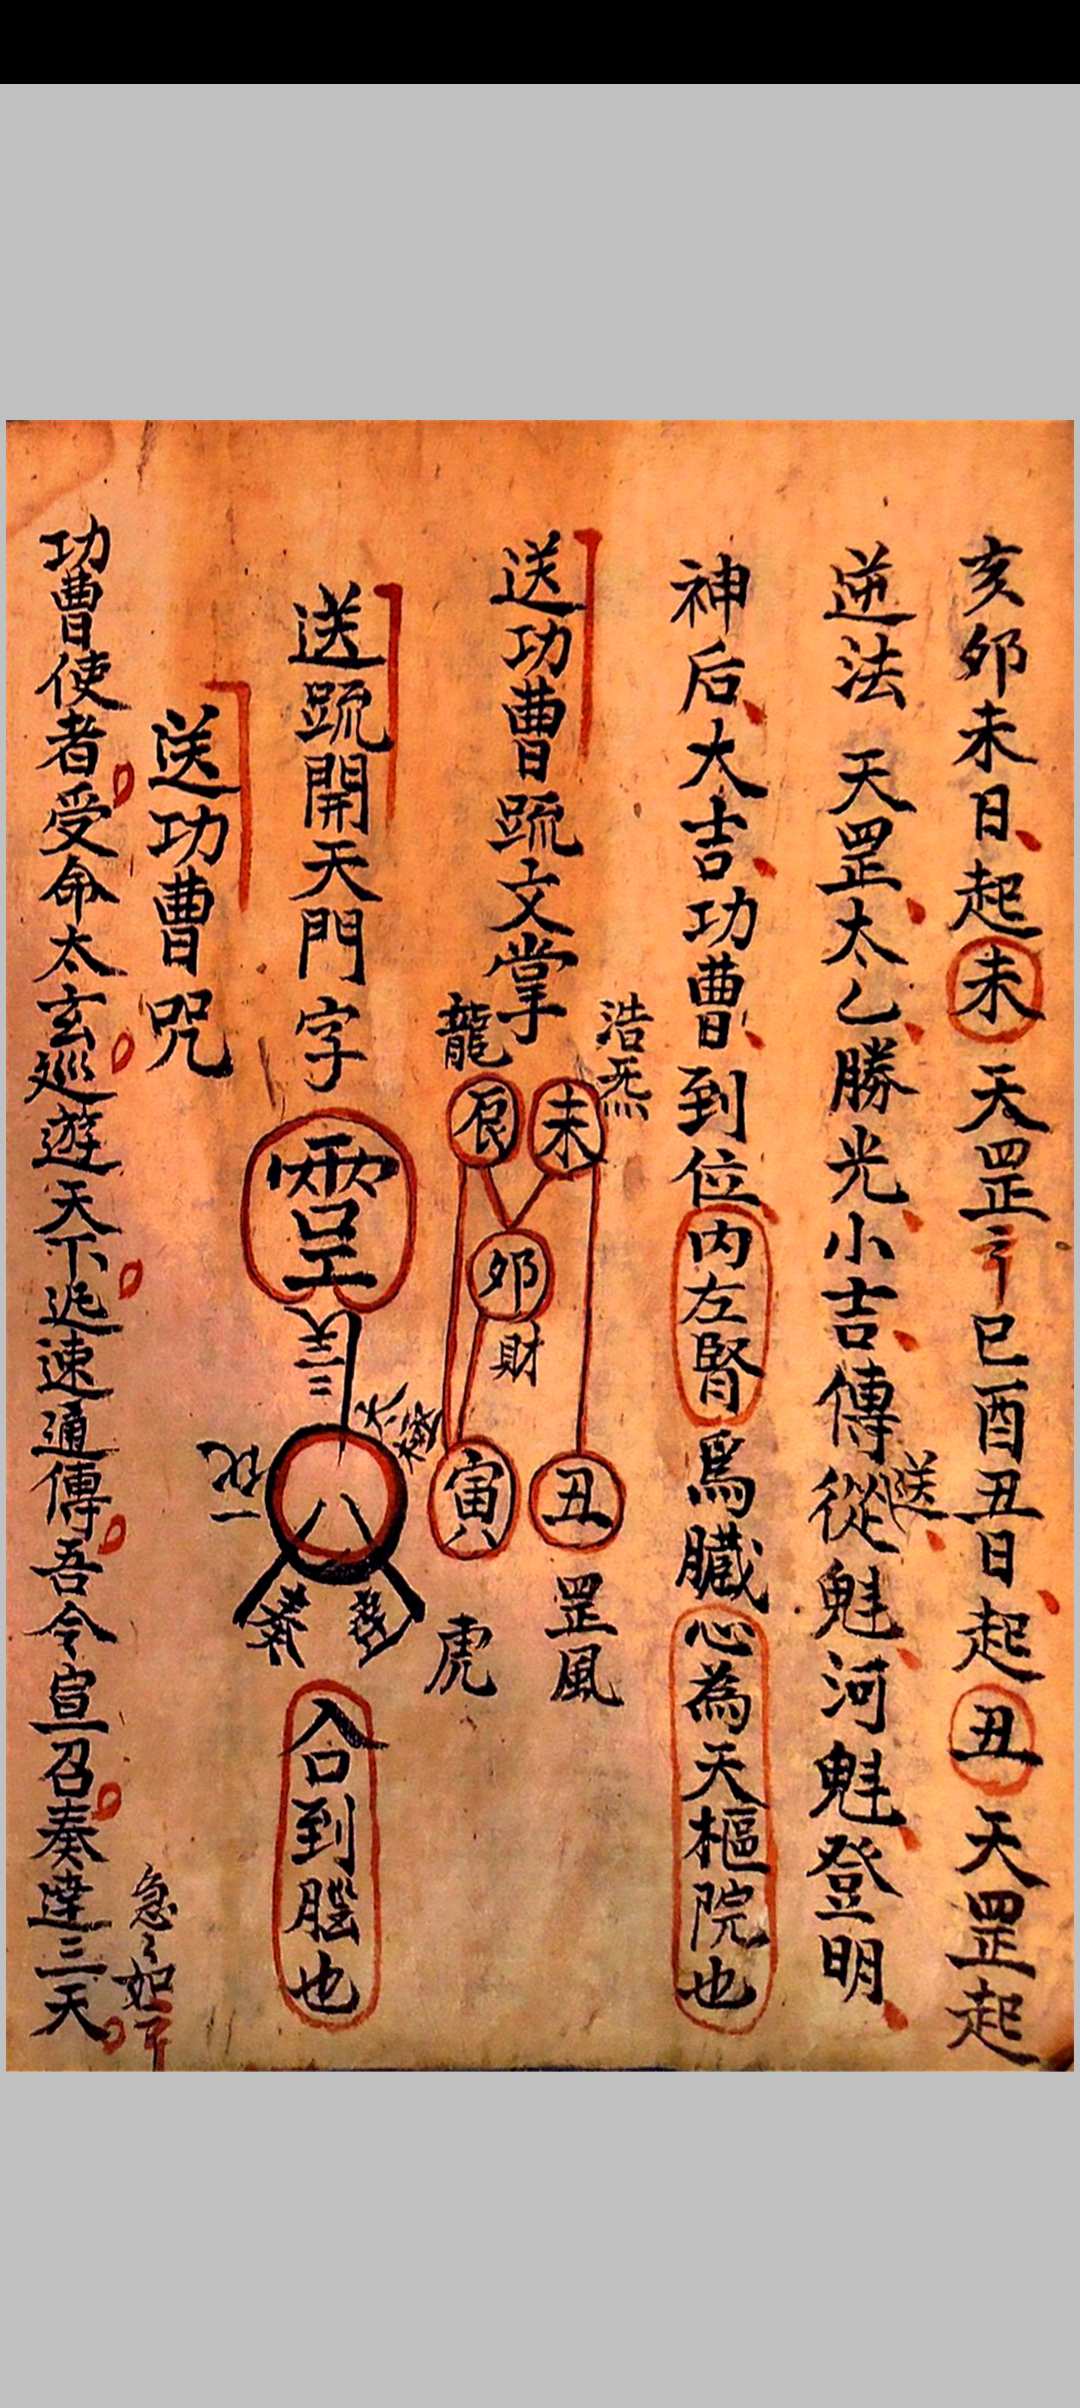 亥卯未日起未天罡ミ巳酉丑日起丑天罡起
逆法 天罡太乙勝光小吉傳送從魁河魁登明
神后大吉功曹到位內左腎為臟心為天樞院也
送功曹䟽文掌
浩炁
未
龍
艮
卯
財
丑
罡風
寅
虎
送䟽開天門字
八
入口到腦也
送功曹咒
功曹使者受命太玄巡遊天下迅速通傳吾令宣召奏達三天
急ミ如